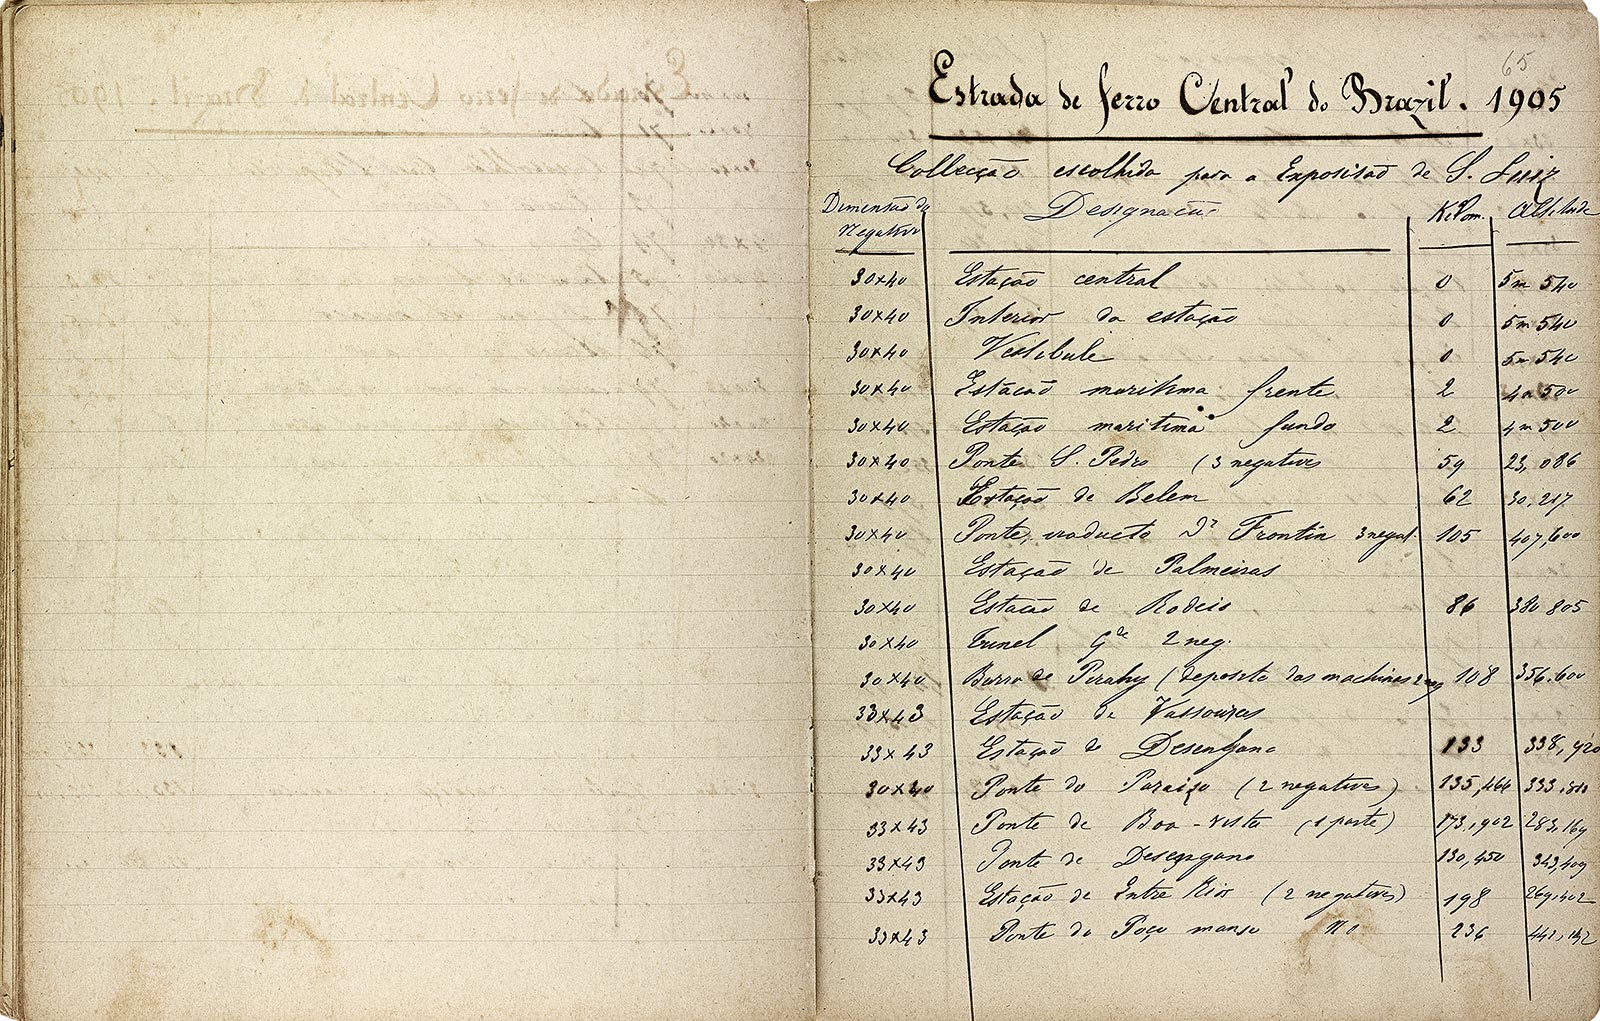 65
Estrada de ferro Central do Brazil. 1905
Collecção escolhida para a Exposisão de S. Luiz
Dimensão do Negativo Designação Kilom. Altitude
30x40 Estação central 0 5m 540
30x40 Interior da estação 0 5m 540
30x40 Vestibule 0 5m 540
30x40 Estação maritima frente 2 4m 500
30x40 Estação maritima fundo 2 4m 500
30x40 Ponte S. Pedro (3 negatives 59 23,086
30x40 Estação de Belem 62 30,217
30x40 Ponte, viaducto Dr Frontin 3 negat. 105 407,600
30x40 Estação de Palmeiras
30x40 Estação de Rodeio 86 380 805
30x40 Tunel Gde 2 neg.
30x40 Barra de Pirahy (deposito das machinas 2 neg 108 356.600
33x43 Estação de Vassouras
33x43 Estação do Desengano 133 338,920
30x40 Ponte do Paraizo (2 negatives) 135,466
33x43 Ponte de Boa-vista (1 parte) 173,902 283,169
33x43 Ponte de Desengano 130,450 343,409
33x43 Estação de Entre Rios (2 negatives) 198 269,402
33x43 Ponte do Poço manso No 236 442,142